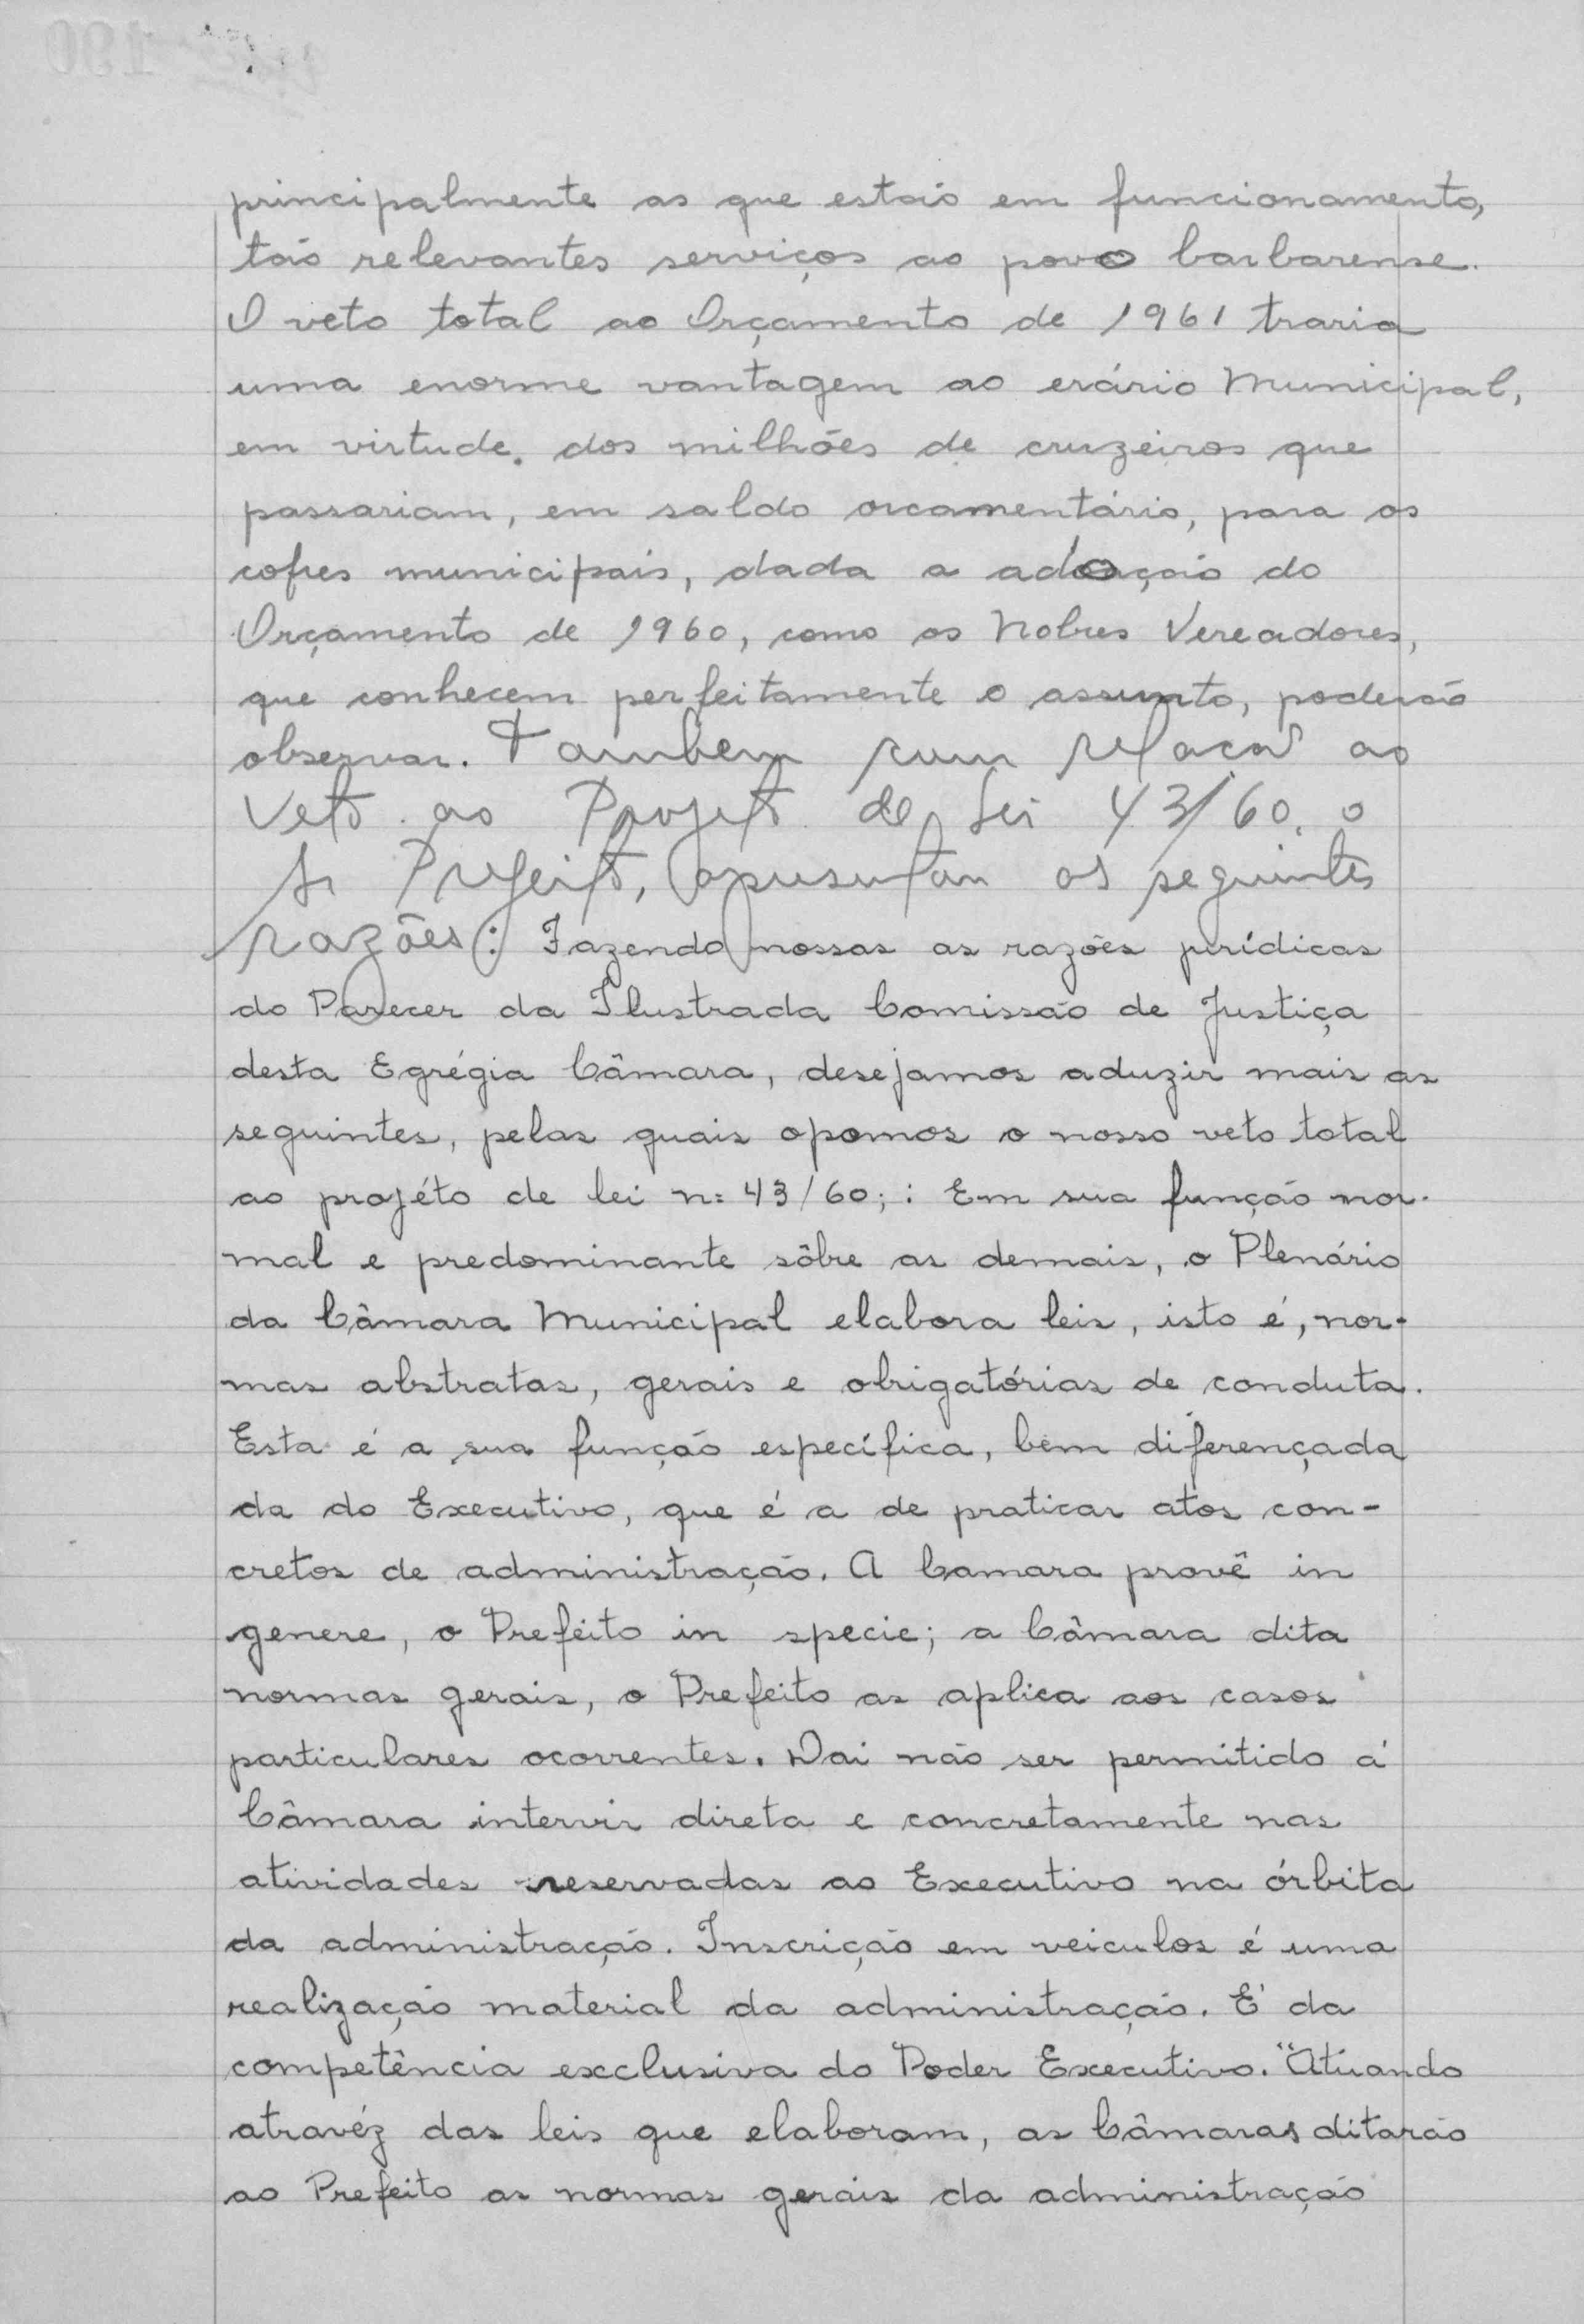 principalmente as que estão em funcionamento,
tão relevantes serviços ao povo barbarense.
O veto total ao Orçamento de 1961 traria
uma enorme vantagem ao erário Municipal,
em virtude. dos milhões de cruzeiros que
passariam, em saldo orcamentário, para os
cofres municipais, dada a adoação do
Orçamento de 1960, como os Nobres Vereadores,
que conhecem perfeitamente o assunto, poderão
observar. Tambem com relacao ao
Veto ao Projeto de Lei 43/60. o
Sr Prefeito, apresentou as seguintes
razões: Fazendo nossas as razões jurídicas
do Parecer da Ilustrada Comissão de Justiça
desta Egrégia Câmara, desejamos aduzir mais as
seguintes, pelas quais opomos o nosso veto total
ao projéto de lei n: 43/60; : Em sua função nor-
mal e predominante sôbre as demais, o Plenário
da Câmara Municipal elabora leis, isto é, nor-
mas abstratas, gerais e obrigatórias de conduta.
Esta é a sua função específica, bem diferençada
da do Executivo, que é a de praticar atos con-
cretos de administração. A Camara provê in
genere, o Prefeito in specie; a Câmara dita
normas gerais, o Prefeito as aplica aos casos
particulares ocorrentes. Dai não ser permitido á
Câmara intervir direta e concretamente nas
atividades reservadas ao Executivo na órbita
da administração. Inscrição em veiculos é uma
realização material da administração. É da
competência exclusiva do Poder Executivo. "Atuando
atravéz das leis que elaboram, as Câmaras ditarão
ao Prefeito as normas gerais da administração